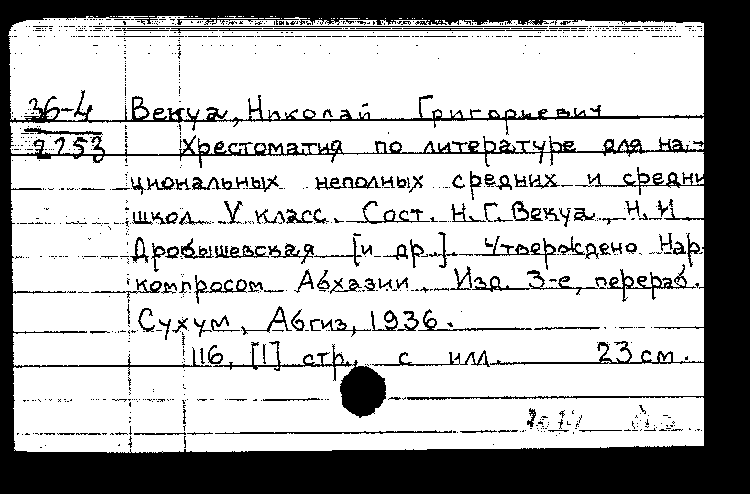 36-4 Векуа, Николай Григорьевич
2253 Хрестоматия по литературе для на-
циональных неполных средних и средни
школ. V класс. Сост. Н.Г. Векуа, Н.И.
Дробышевская [и др.]. Утверждено Нар-
компросом Абхазии. Изд. 3-е, перераб.
Сухум, Абгиз, 1936.
116, [1] стр., с илл. 23 см.